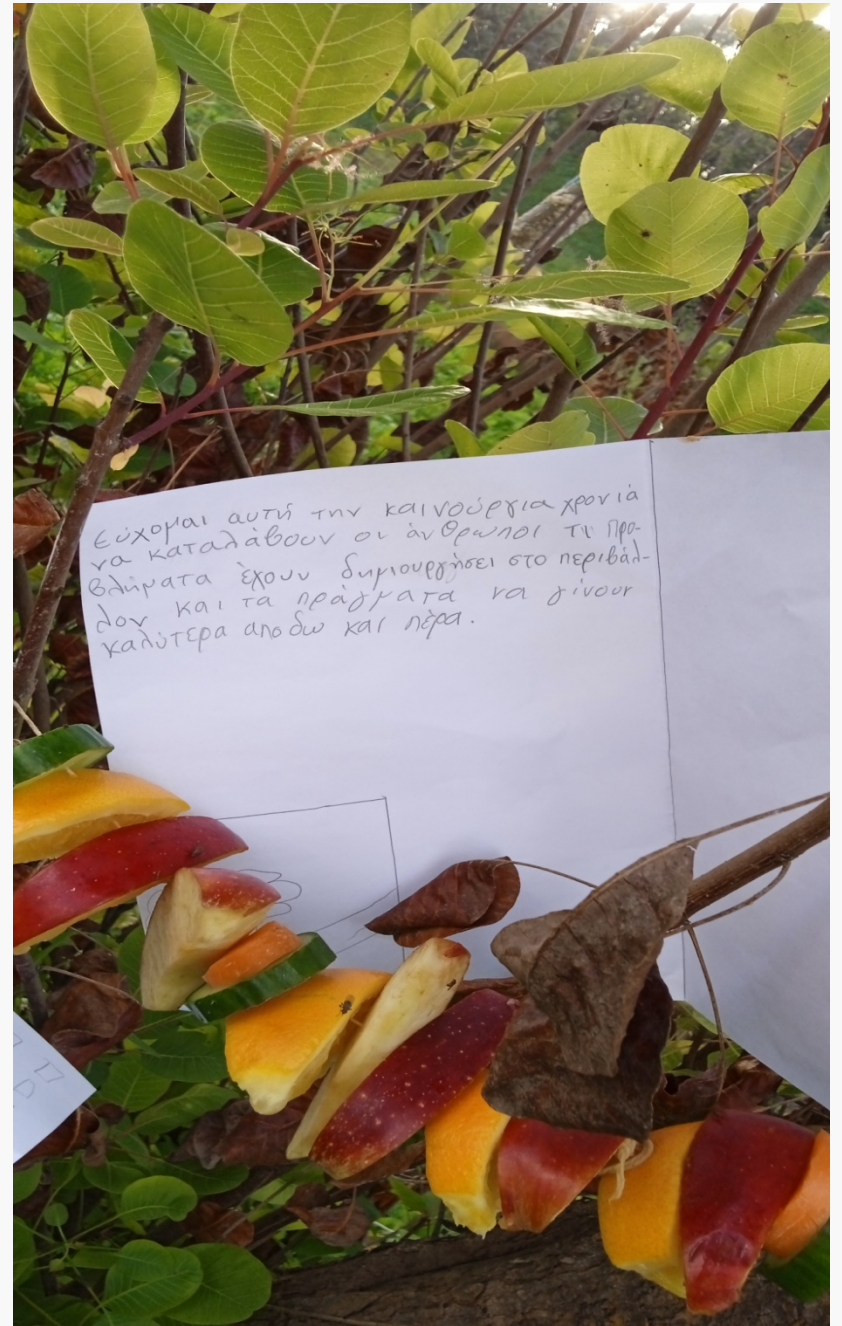 Εύχομαι αυτή την καινούργια χρονιά
να καταλάβουν οι άνθρωποι τι προ-
βλήματα έχουν δημιουργήσει στο περιβάλ-
λον και τα πράγματα να γίνουν
καλύτερα απο δω και πέρα.